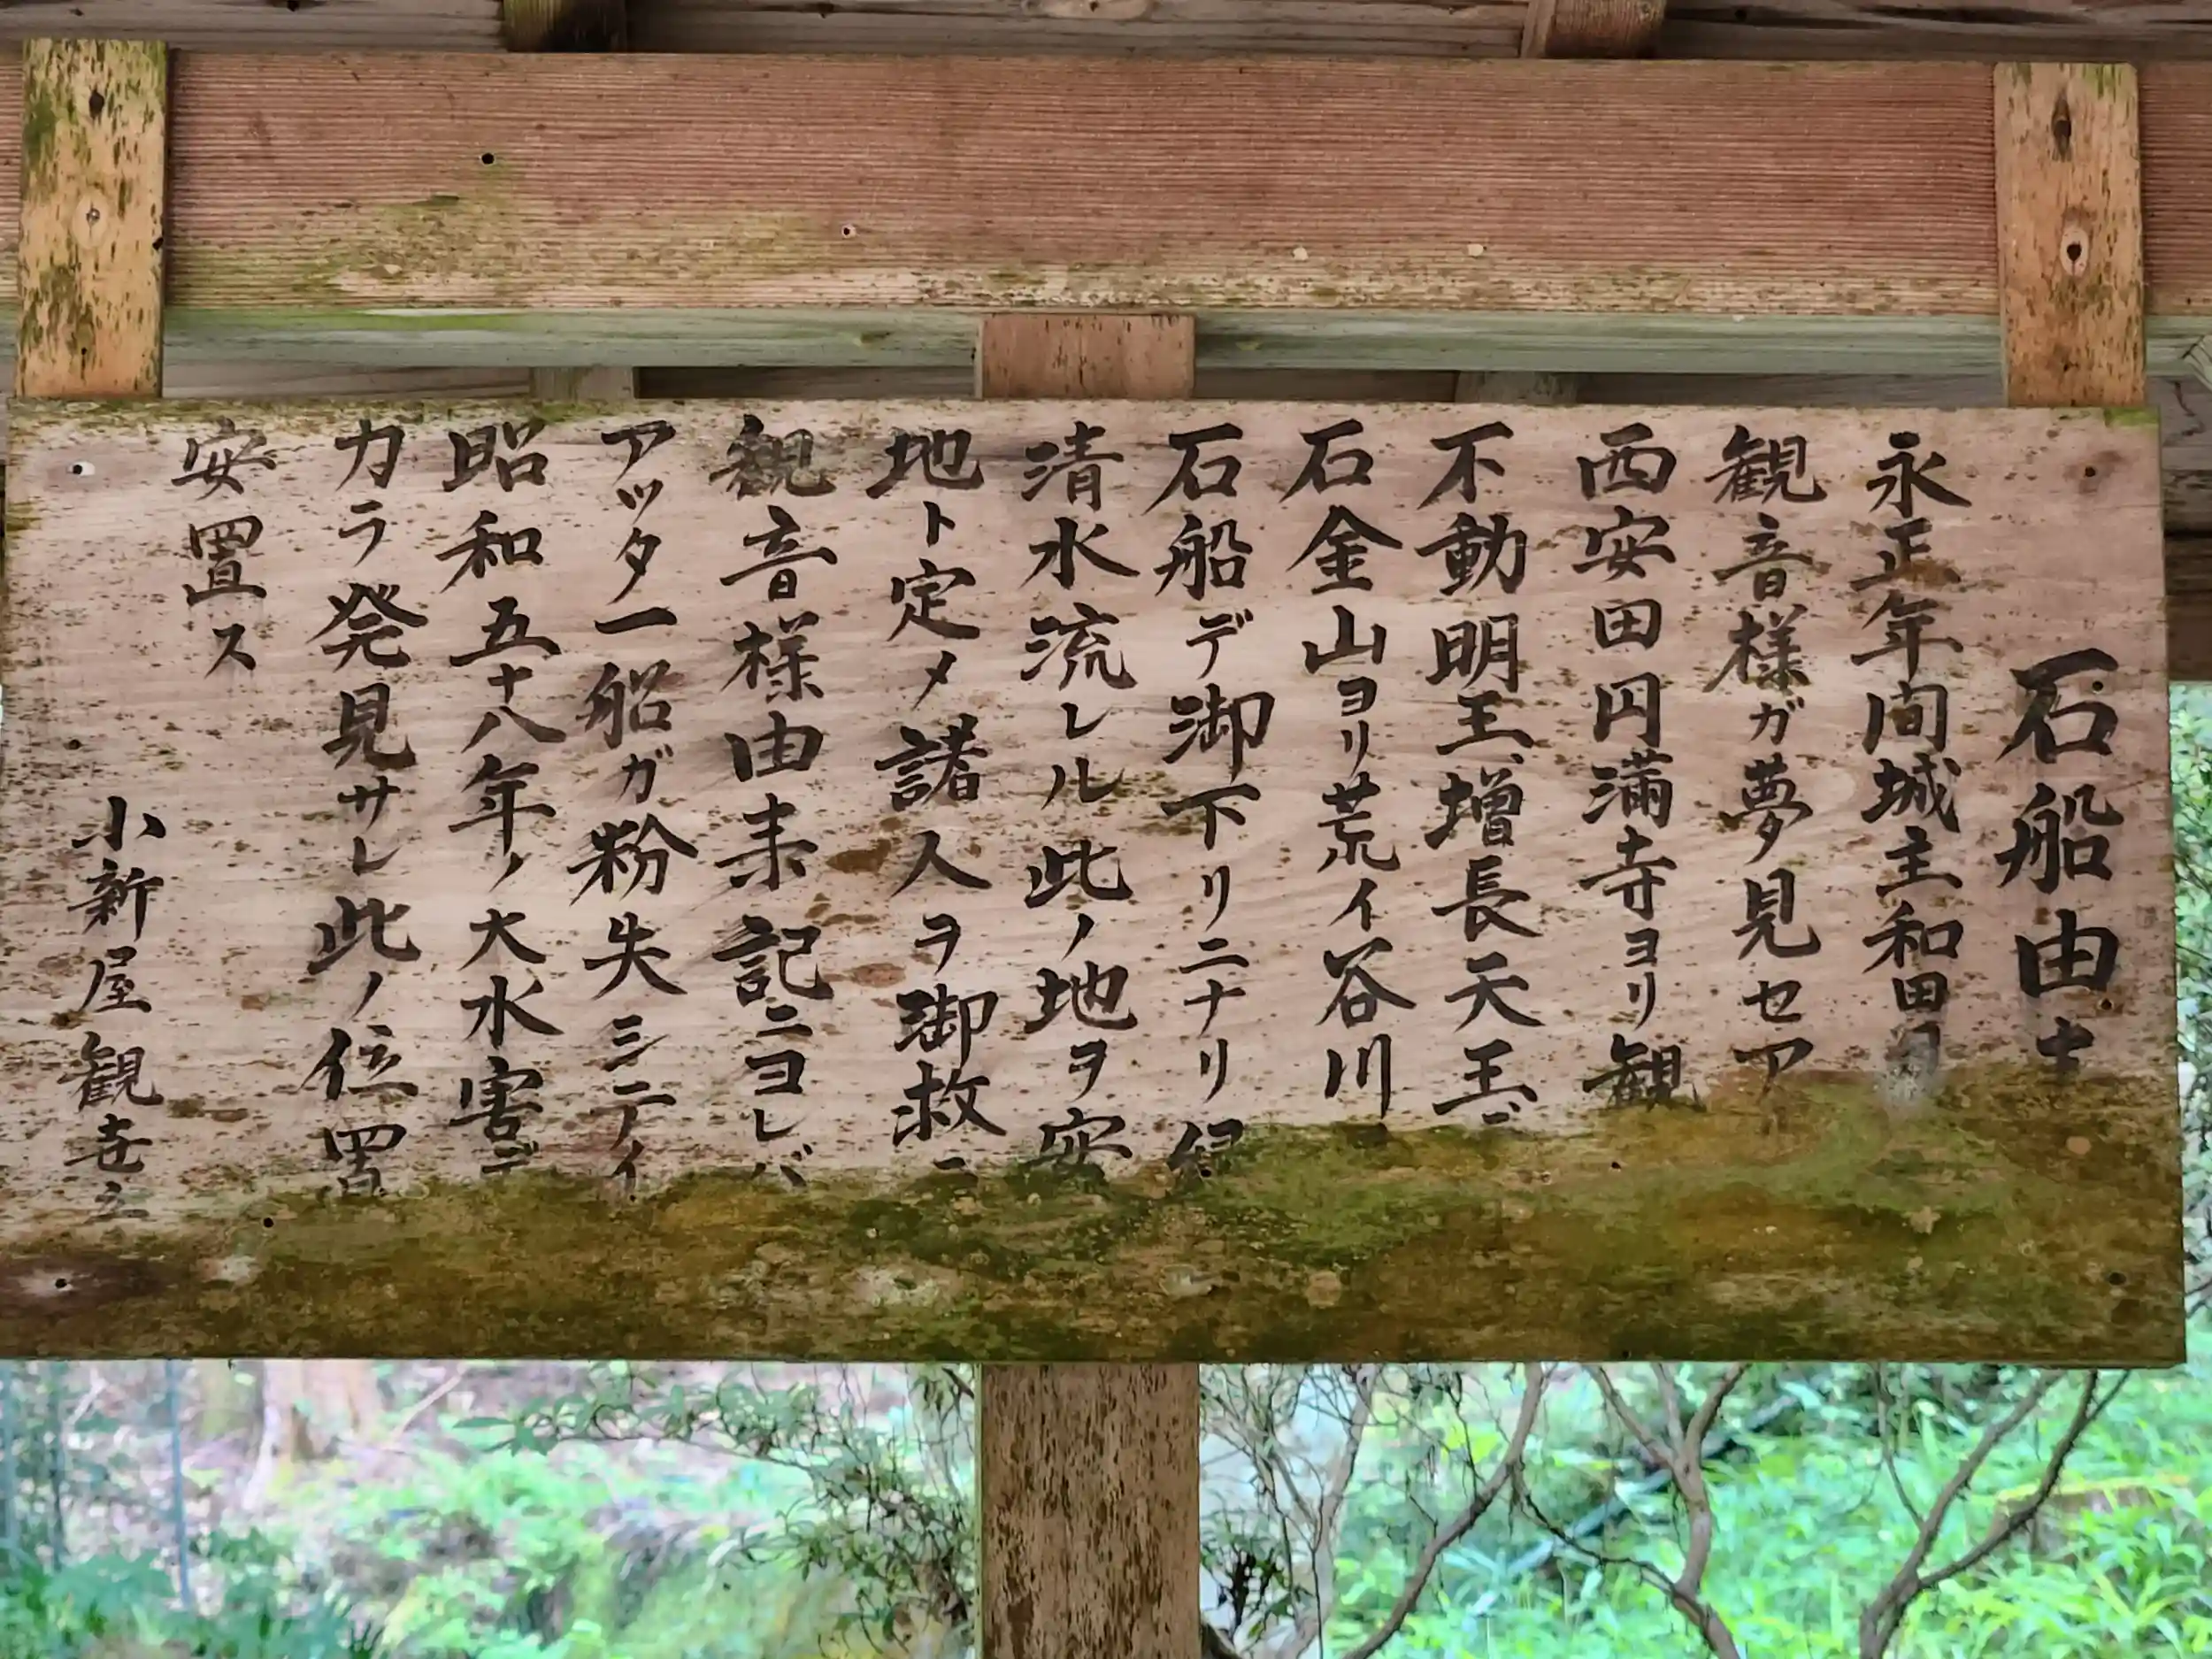 石船由
永正年間城主和田
観音様ガ夢見セア
西安田円満寺ヨリ観
不動明王、増長天王
石金山ヨリ荒イ谷川
石船デ御下リニナリ
清水流レル此ノ地ヲ安
地ト定メ諸人ヲ御救
観音様由来記ニヨレバ
アッタ一船ガ粉失シテイ
昭和五十八年ノ大水害デ
カラ発見サレ此ノ位置
安置ス
小新屋観